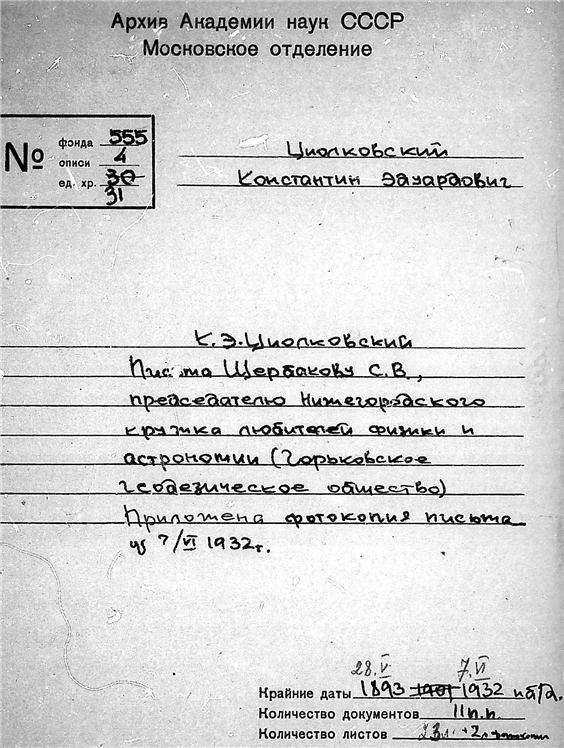 Архив Академии наук СССР
Московское отделение
№
фонда 555
описи 4
ед. хр. 30
31
Циолковский
Константин Эдуардович
К.Э.Циолковский
Письма Щербакову С.В.,
председателю Нижегородского
кружка любителей физики и
астрономии (Горьковское
геодезическое общество)
Приложена фотокопия письма
7/VI 1932г.
28.V 7.VI
Крайние даты 1893 1932 и б/д.
Количество документов 11 п.п.
Количество листов 23л. +2л